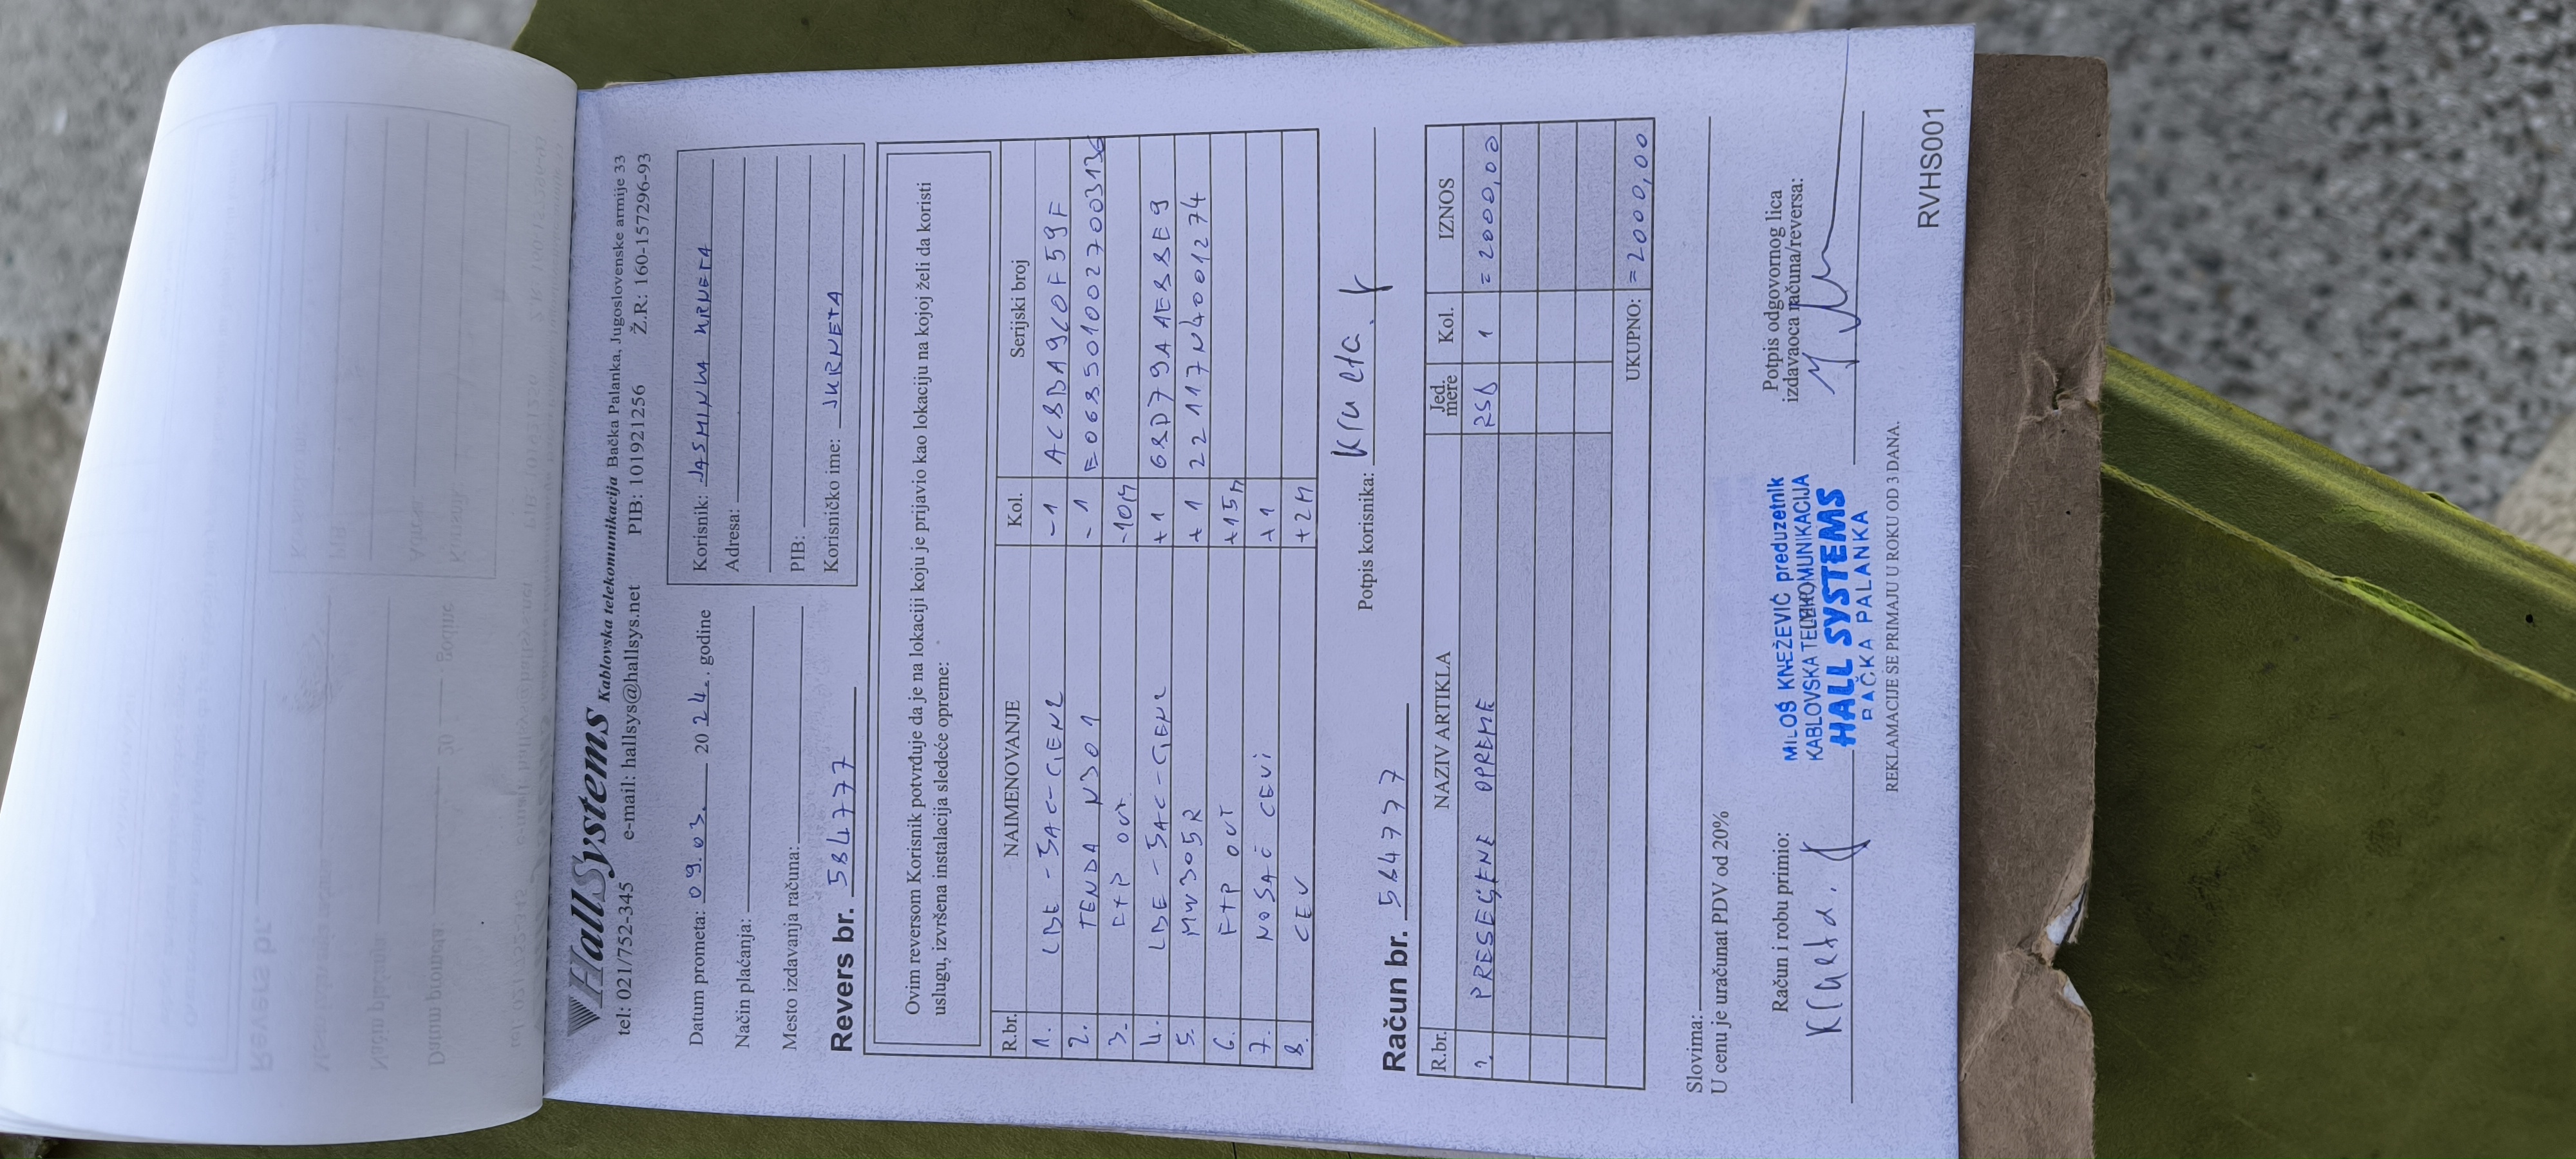 HallSystems Kablovska telekomunikacija Bačka Palanka, Jugoslovenske armije 33
tel: 021/752-345 e-mail: hallsys@hallsys.net PIB: 101921256 Ž.R: 160-157296-93
Datum prometa: 09.03. 2024. godine
Način plaćanja:
Mesto izdavanja računa:
Korisnik: JASMINKA KRNETA
Adresa:
PIB:
Korisničko ime: JKRNETA
Revers br. 584777
Ovim reversom Korisnik potvrđuje da je na lokaciji koju je prijavio kao lokaciju na kojoj želi da koristi
uslugu, izvršena instalacija sledeće opreme:
R.br. NAIMENOVANJE Kol. Serijski broj
1. LBE-5AC-GEN2 -1 AC8BA9C0F59F
2. TENDA N301 -1 E0685010027003136
3. FTP OUT -10M
4. LBE-5AC-GEN2 +1 68D79A1E88E9
5. MW305R +1 22117N4001274
6. FTP OUT +15M
7. NOSAČ CEVI +1
8. CEV +2M
Potpis korisnika: Krneta
Račun br. 584777
R.br. NAZIV ARTIKLA Jed. mere Kol. IZNOS
1. PRESEČENE OPREME RSD 1 =2000,00
UKUPNO: =2000,00
Slovima:
U cenu je uračunat PDV od 20%
Račun i robu primio:
Krneta
MILOŠ KNEŽEVIĆ preduzetnik
KABLOVSKA TELEKOMUNIKACIJA
HALL SYSTEMS
BAČKA PALANKA
Potpis odgovornog lica
izdavaoca računa/reversa:
REKLAMACIJE SE PRIMAJU U ROKU OD 3 DANA.
RVHS001